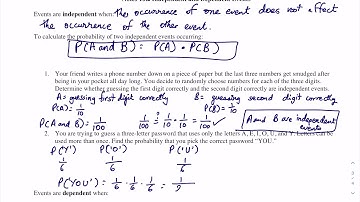 Events are independent when: the occurrence of one event does not effect
the occurrence of the other event.
To calculate the probability of two independent events occurring:
P(A and B) = P(A) · P(B)
1. Your friend writes a phone number down on a piece of paper but the last three numbers get smudged after
being in your pocket all day long. You decide to randomly choose numbers for each of the three digits.
Determine whether guessing the first digit correctly and the second digit correctly are independent events.
A = guessing first digit correctly B = guessing second digit correctly
P(A) = 1/10 P(B) = 1/10
P(A and B) = 1/100 1/100 ?= 1/10 · 1/10 = 1/100 ✓ A and B are independent
events
2. You are trying to guess a three-letter password that uses only the letters A, E, I, O, U, and Y. Letters can be
used more than once. Find the probability that you pick the correct password "YOU."
P('Y') P('O') P('U')
1/6 1/6 1/6
P('YOU') = 1/6 · 1/6 · 1/6 = 1/2
Events are dependent when: